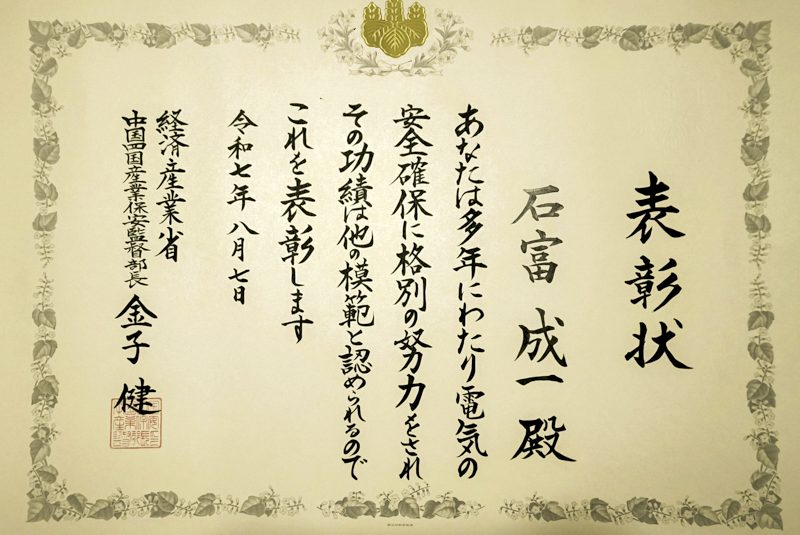 表彰状
石富 成一 殿
あなたは多年にわたり電気の
安全確保に格別の努力をされ
その功績は他の模範と認められるので
これを表彰します
令和七年 八月七日
経済産業省
中国四国産業保安監督部長 金子 健